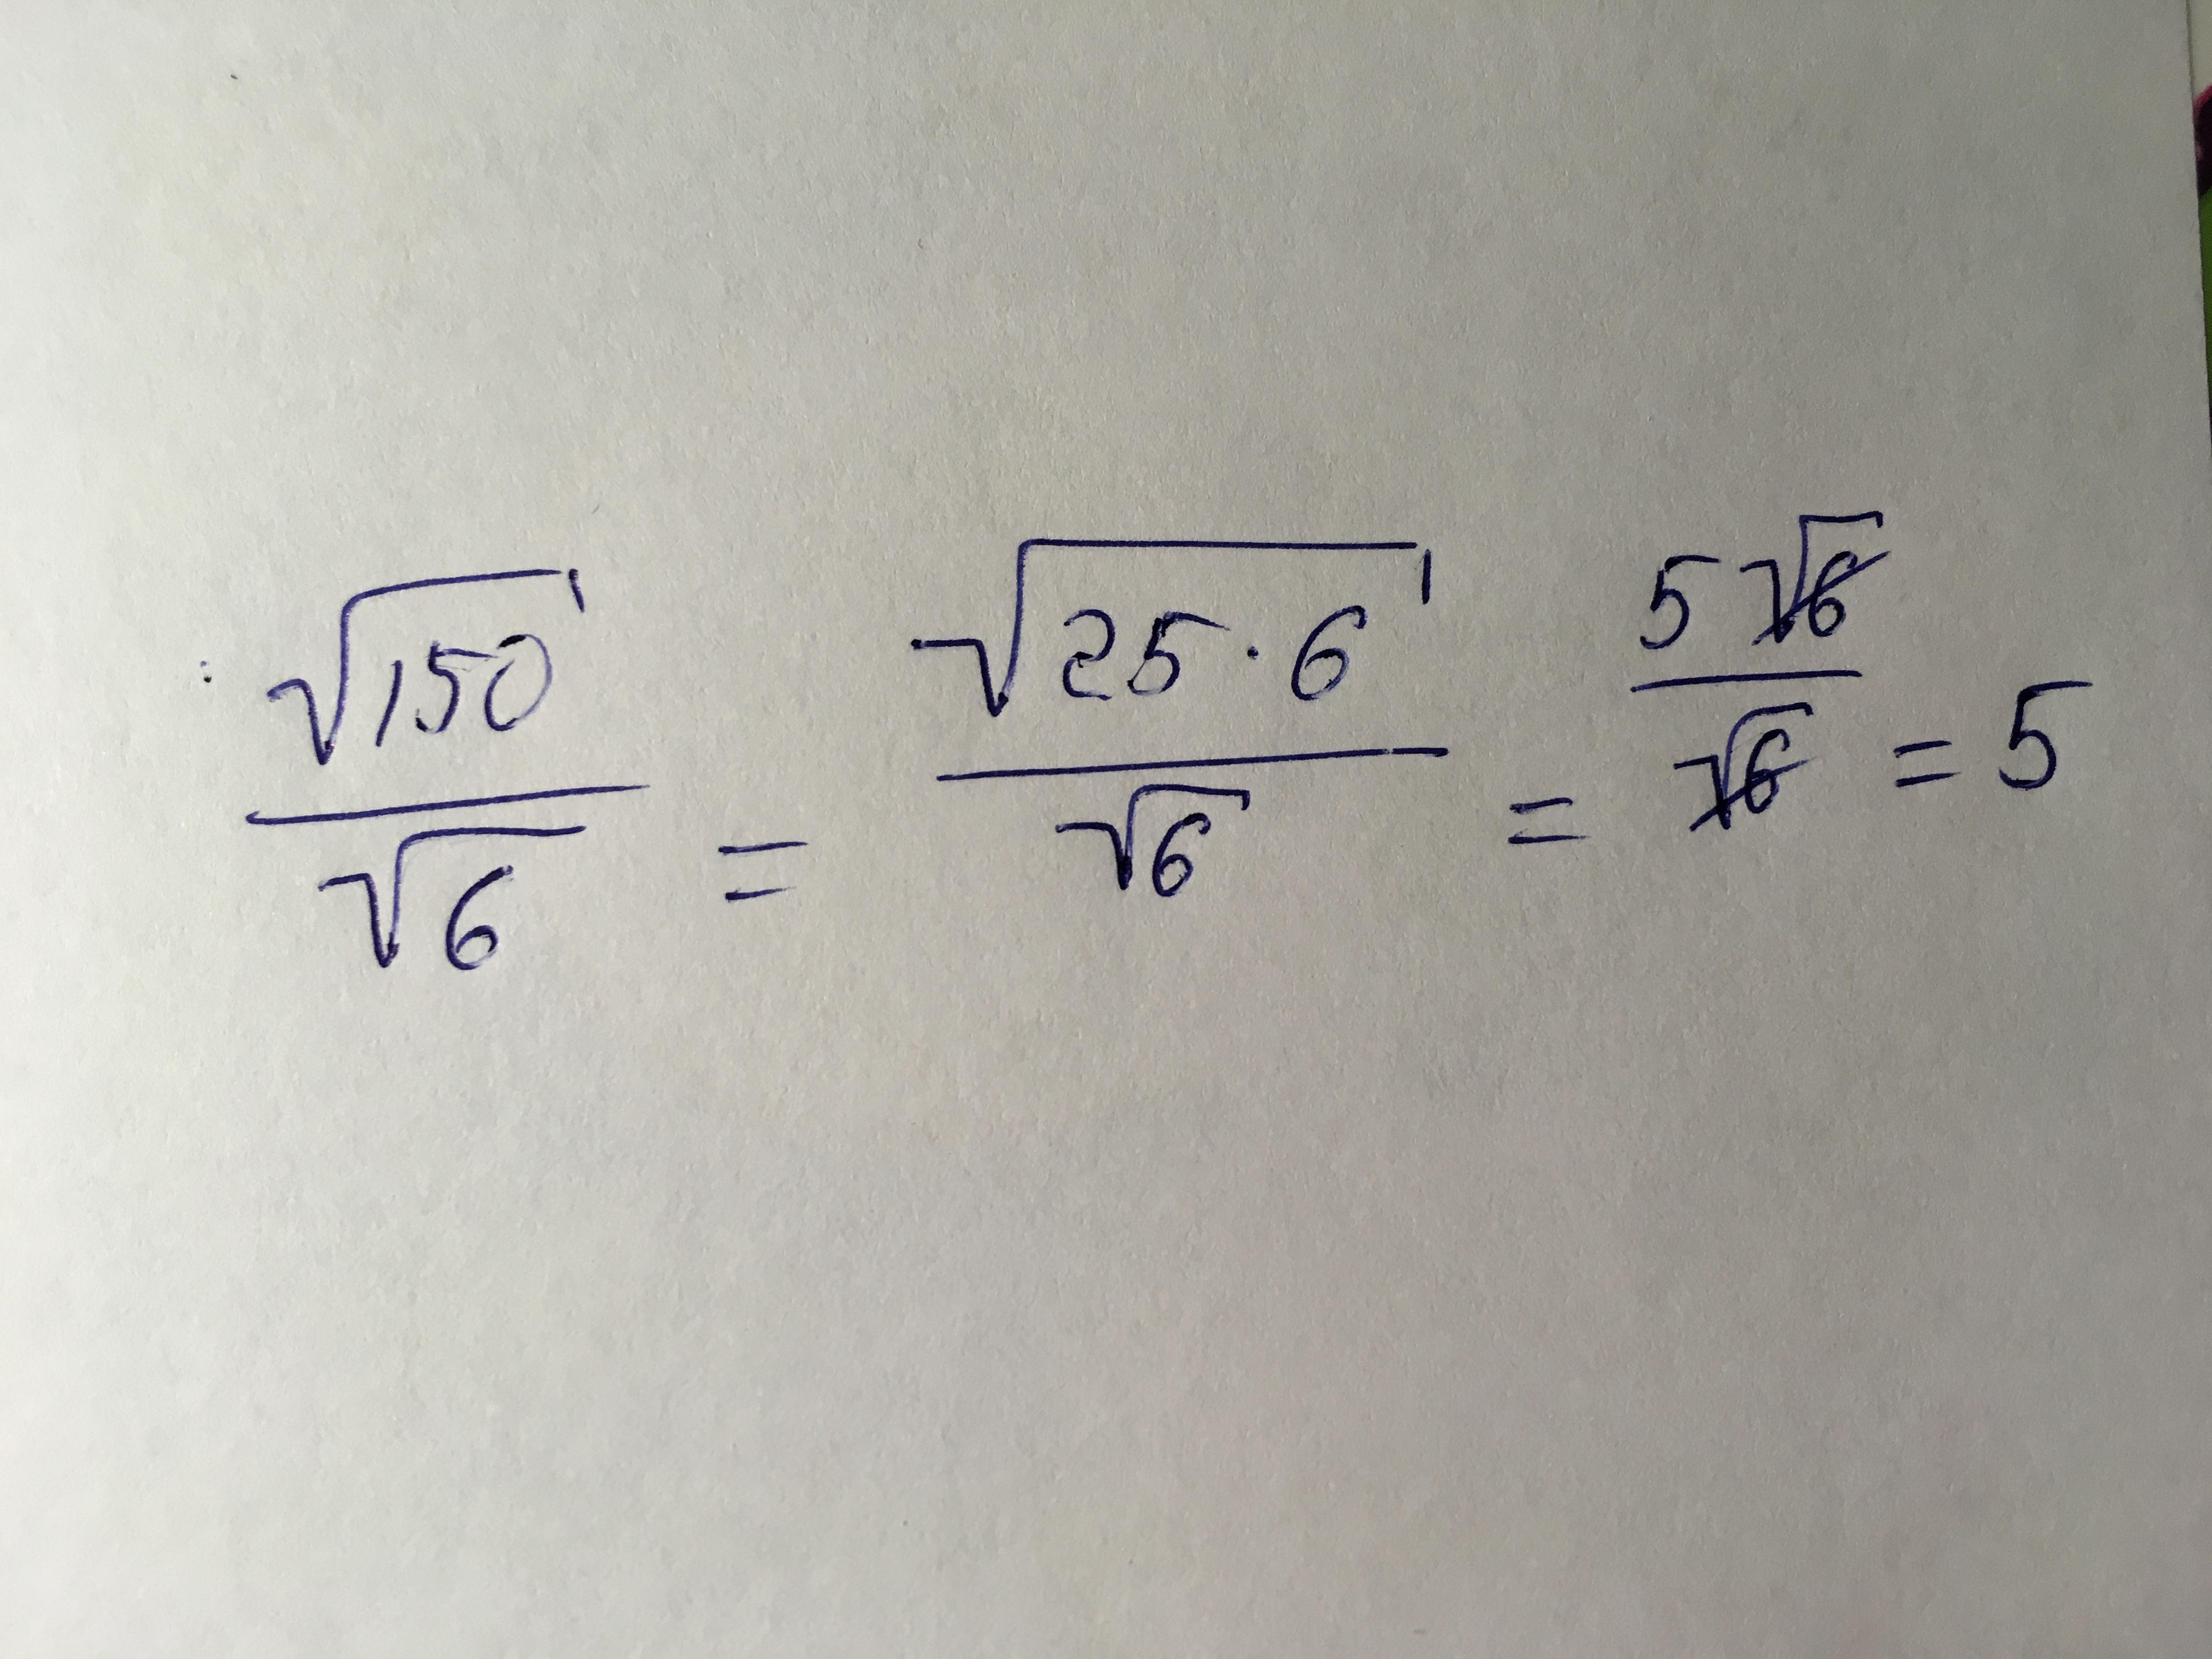 √150/√6 = √(25·6)/√6 = 5√6/√6 = 5